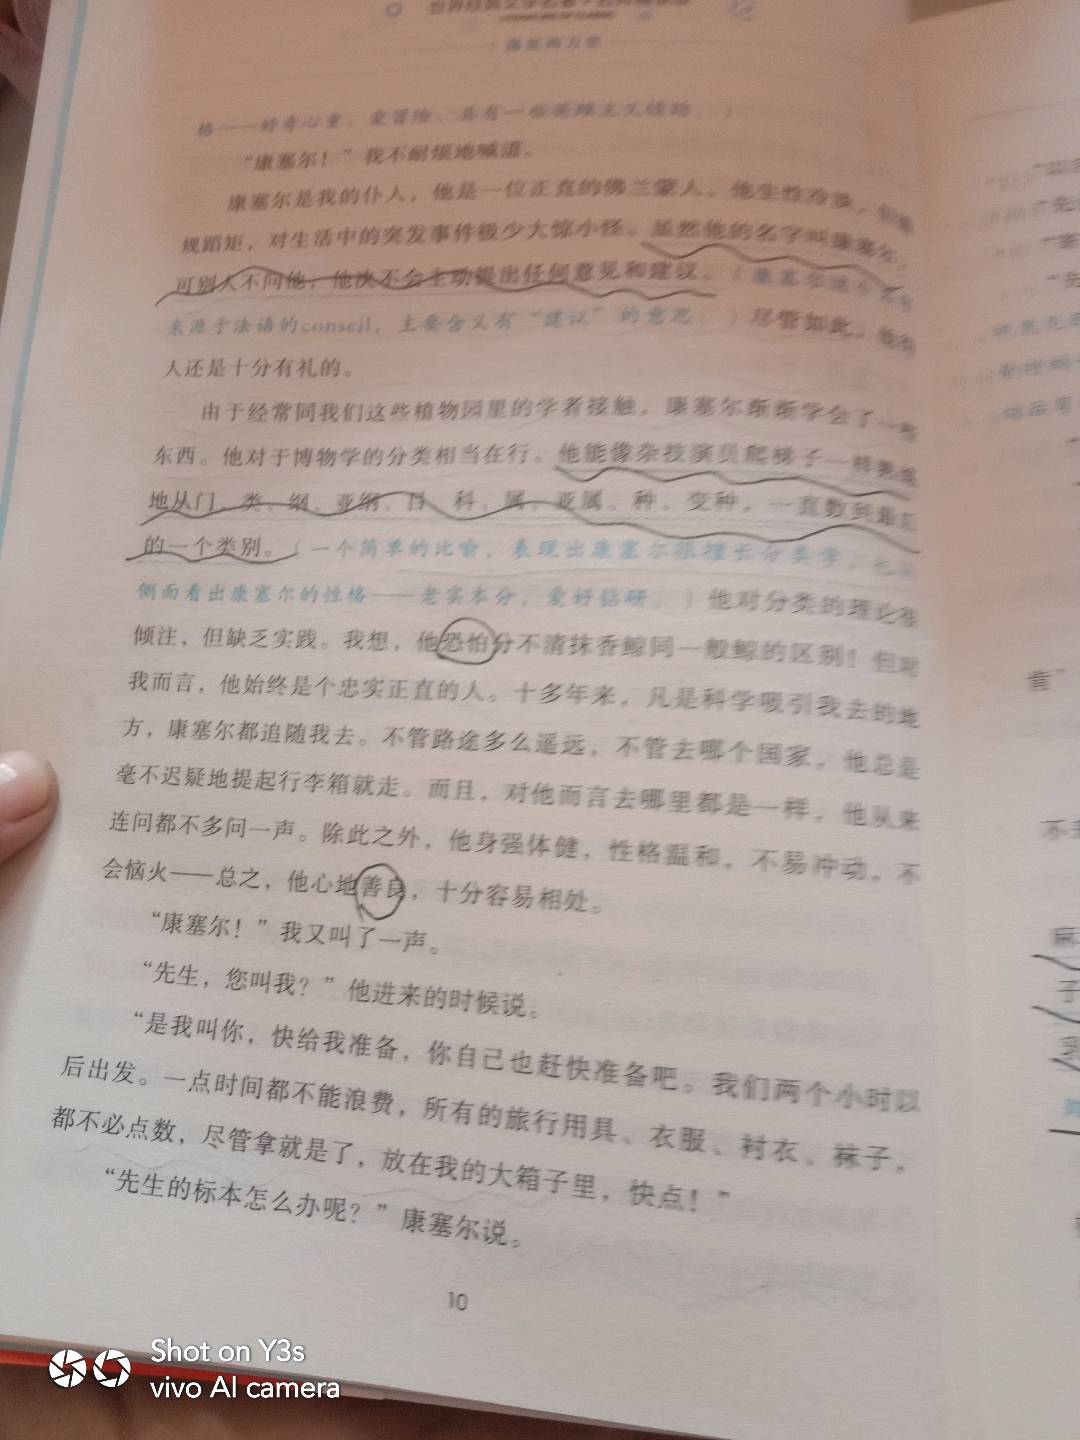 海底两万里
格——好奇心重、爱冒险、具有一些英雄主义情结。）
“康塞尔！”我不耐烦地喊道。
康塞尔是我的仆人，他是一位正直的佛兰蒙人。他生性冷静，
规蹈矩，对生活中的突发事件极少大惊小怪。虽然他的名字叫康塞尔，
可别人不问他，他决不会主动提出任何意见和建议。（康塞尔这个名字
来源于法语的conseil，主要含义有“建议”的意思。）尽管如此，他待
人还是十分有礼的。
由于经常同我们这些植物园里的学者接触，康塞尔渐渐学会了一些
东西。他对于博物学的分类相当在行。他能像杂技演员爬梯子一样熟练
地从门、类、纲、亚纲、目、科、属、亚属、种、变种，一直数到最后
的一个类别。（一个简单的比喻，表现出康塞尔很擅长分类学，
侧面看出康塞尔的性格——老实本分，爱好钻研。）他对分类的理论很
倾注，但缺乏实践。我想，他恐怕分不清抹香鲸同一般鲸的区别！但对
我而言，他始终是个忠实正直的人。十多年来，凡是科学吸引我去的地
方，康塞尔都追随我去。不管路途多么遥远，不管去哪个国家，他总是
毫不迟疑地提起行李箱就走。而且，对他而言去哪里都是一样，他从来
连问都不多问一声。除此之外，他身强体健，性格温和，不易冲动，不
会恼火——总之，他心地善良，十分容易相处。
“康塞尔！”我又叫了一声。
“先生，您叫我？”他进来的时候说。
“是我叫你，快给我准备，你自己也赶快准备吧。我们两个小时以
后出发。一点时间都不能浪费，所有的旅行用具、衣服、衬衣、袜子，
都不必点数，尽管拿就是了，放在我的大箱子里，快点！”
“先生的标本怎么办呢？”康塞尔说。
10
Shot on Y3s
vivo AI camera